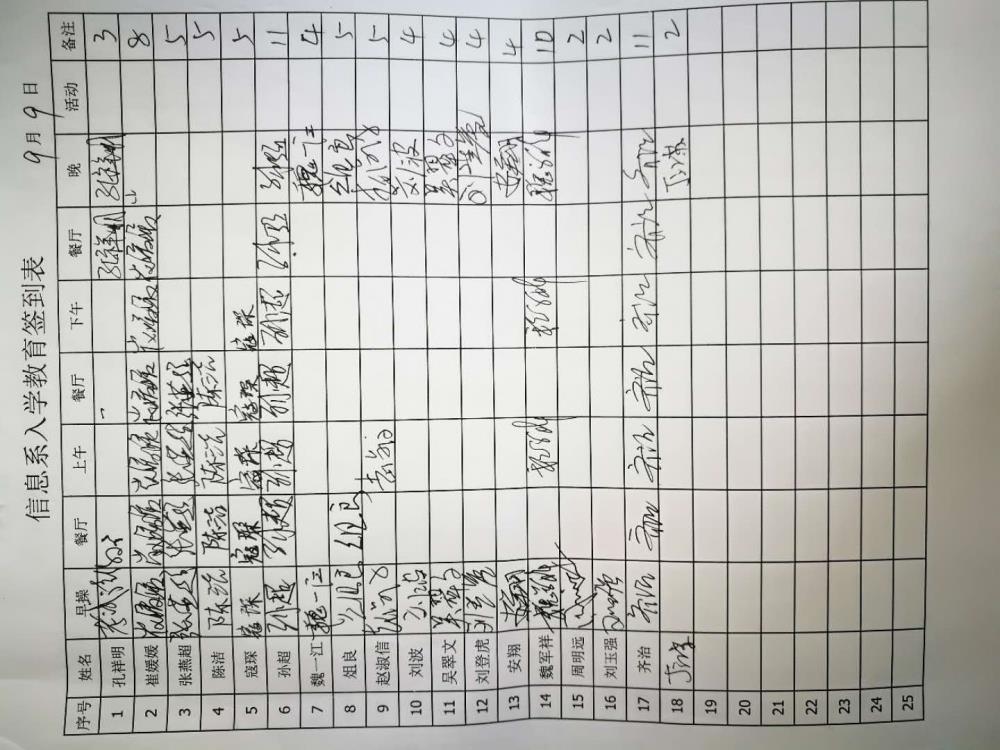 信息系入学教育签到表
9月9日
序号 姓名 早操 餐厅 上午 餐厅 下午 餐厅 晚 活动 备注
1 孔祥明 孔祥明 孔祥明 3
2 崔媛媛 崔媛媛 崔媛媛 崔媛媛 崔媛媛 崔媛媛 崔媛媛 8
3 张燕超 张燕超 张燕超 张燕超 张燕超 5
4 陈洁 陈洁 陈洁 陈洁 陈洁 5
5 寇琛 寇琛 寇琛 寇琛 寇琛 寇琛 5
6 孙超 孙超 孙超 孙超 孙超 孙超 孙超 孙超 11
7 魏一江 魏一江 魏一江 4
8 俎良 俎良 俎良 俎良 5
9 赵淑信 5
10 刘波 刘波 刘波 4
11 吴翠文 吴翠文 吴翠文 4
12 刘登虎 刘登虎 刘登虎 4
13 安翔 安翔 安翔 4
14 魏军祥 魏军祥 魏军祥 10
15 周明远 2
16 刘玉强 2
17 齐治 齐治 齐治 齐治 齐治 齐治 齐治 齐治 11
18 2
19
20
21
22
23
24
25